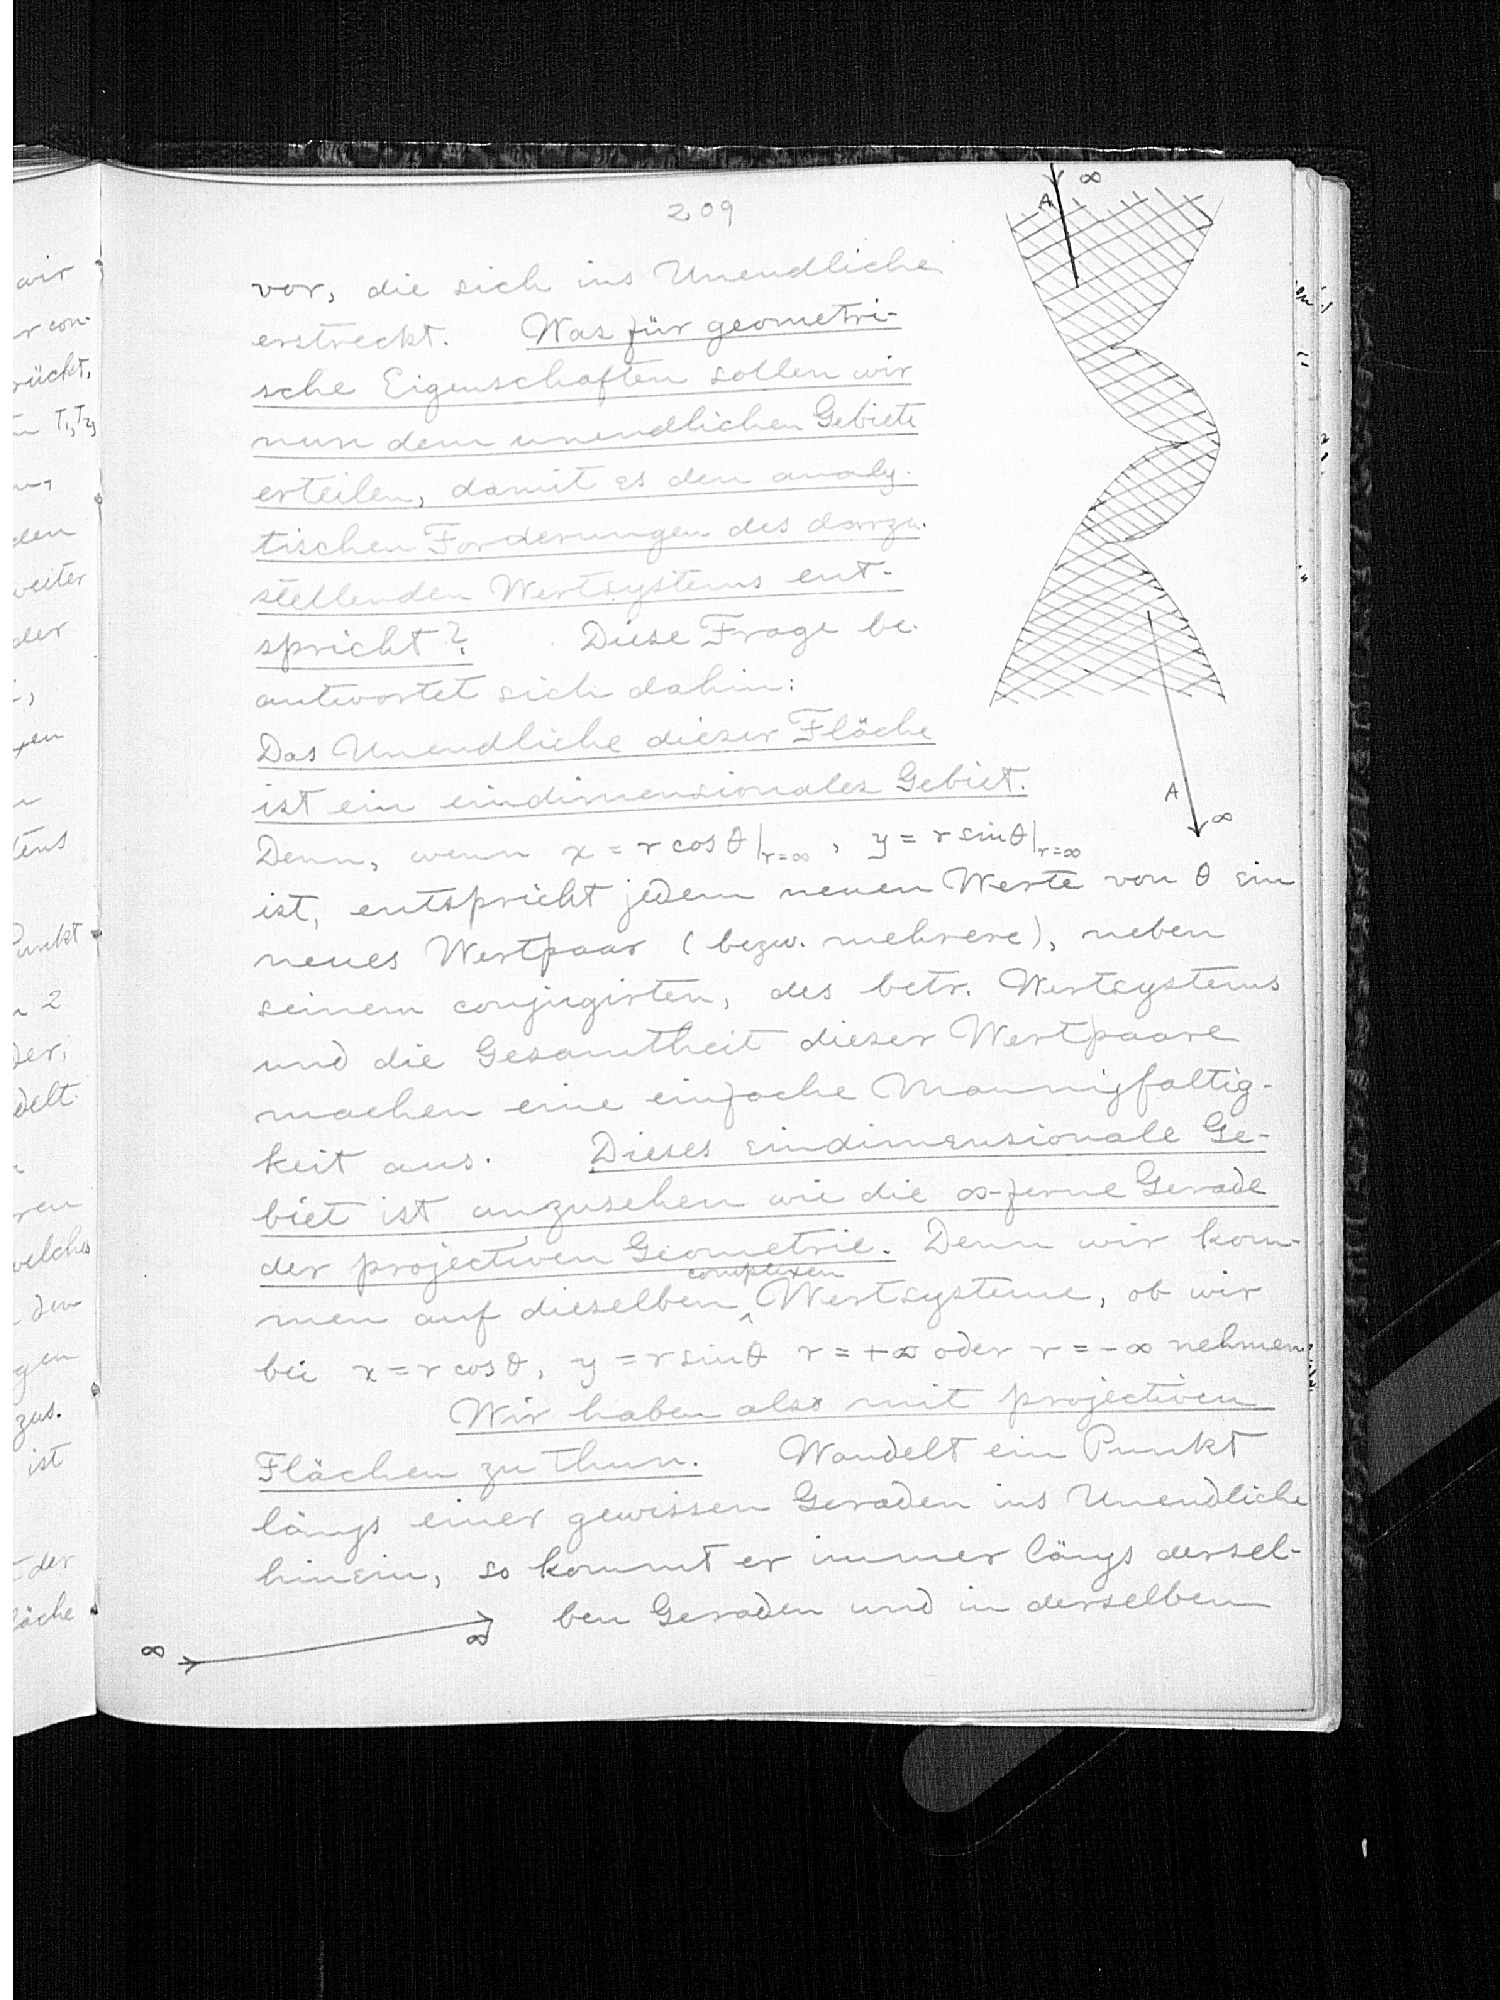 209
vor, die sich ins Unendliche
erstreckt. Was für geometri-
sche Eigenschaften sollen wir
nun dem unendlichen Gebiete
erteilen, damit es den analy-
tischen Forderungen des darzu-
stellenden Wertsystems ent-
spricht? Diese Frage be-
antwortet sich dahin:
Das Unendliche dieser Fläche
ist ein eindimensionales Gebiet.
Denn, wenn x = r cos θ|r=∞, y = r sin θ|r=∞
ist, entspricht jedem neuen Werte von θ ein
neues Wertpaar (bezw. mehrere), neben
seinem conjugirten, des betr. Wertsystems
und die Gesamtheit dieser Wertpaare
machen eine einfache Mannigfaltig-
keit aus. Dieses eindimensionale Ge-
biet ist anzusehen wie die ∞-ferne Gerade
der projectiven Geometrie. Denn wir kom-
men auf dieselben complexen Wertsysteme, ob wir
bei x = r cos θ, y = r sin θ r = +∞ oder r = -∞ nehmen
Wir haben also mit projectiven
Flächen zu thun. Wandelt ein Punkt
längs einer gewissen Geraden ins Unendliche
hinein, so kommt er immer längs dersel-
ben Geraden und in derselben
∞ ∞
A ∞
A ∞
wir
er con-
rückt,
T₁, T₂,
den
weiter
der
tens
Punkt
2
der,
delt
welches
den
gen
zus.
ist
der
läche